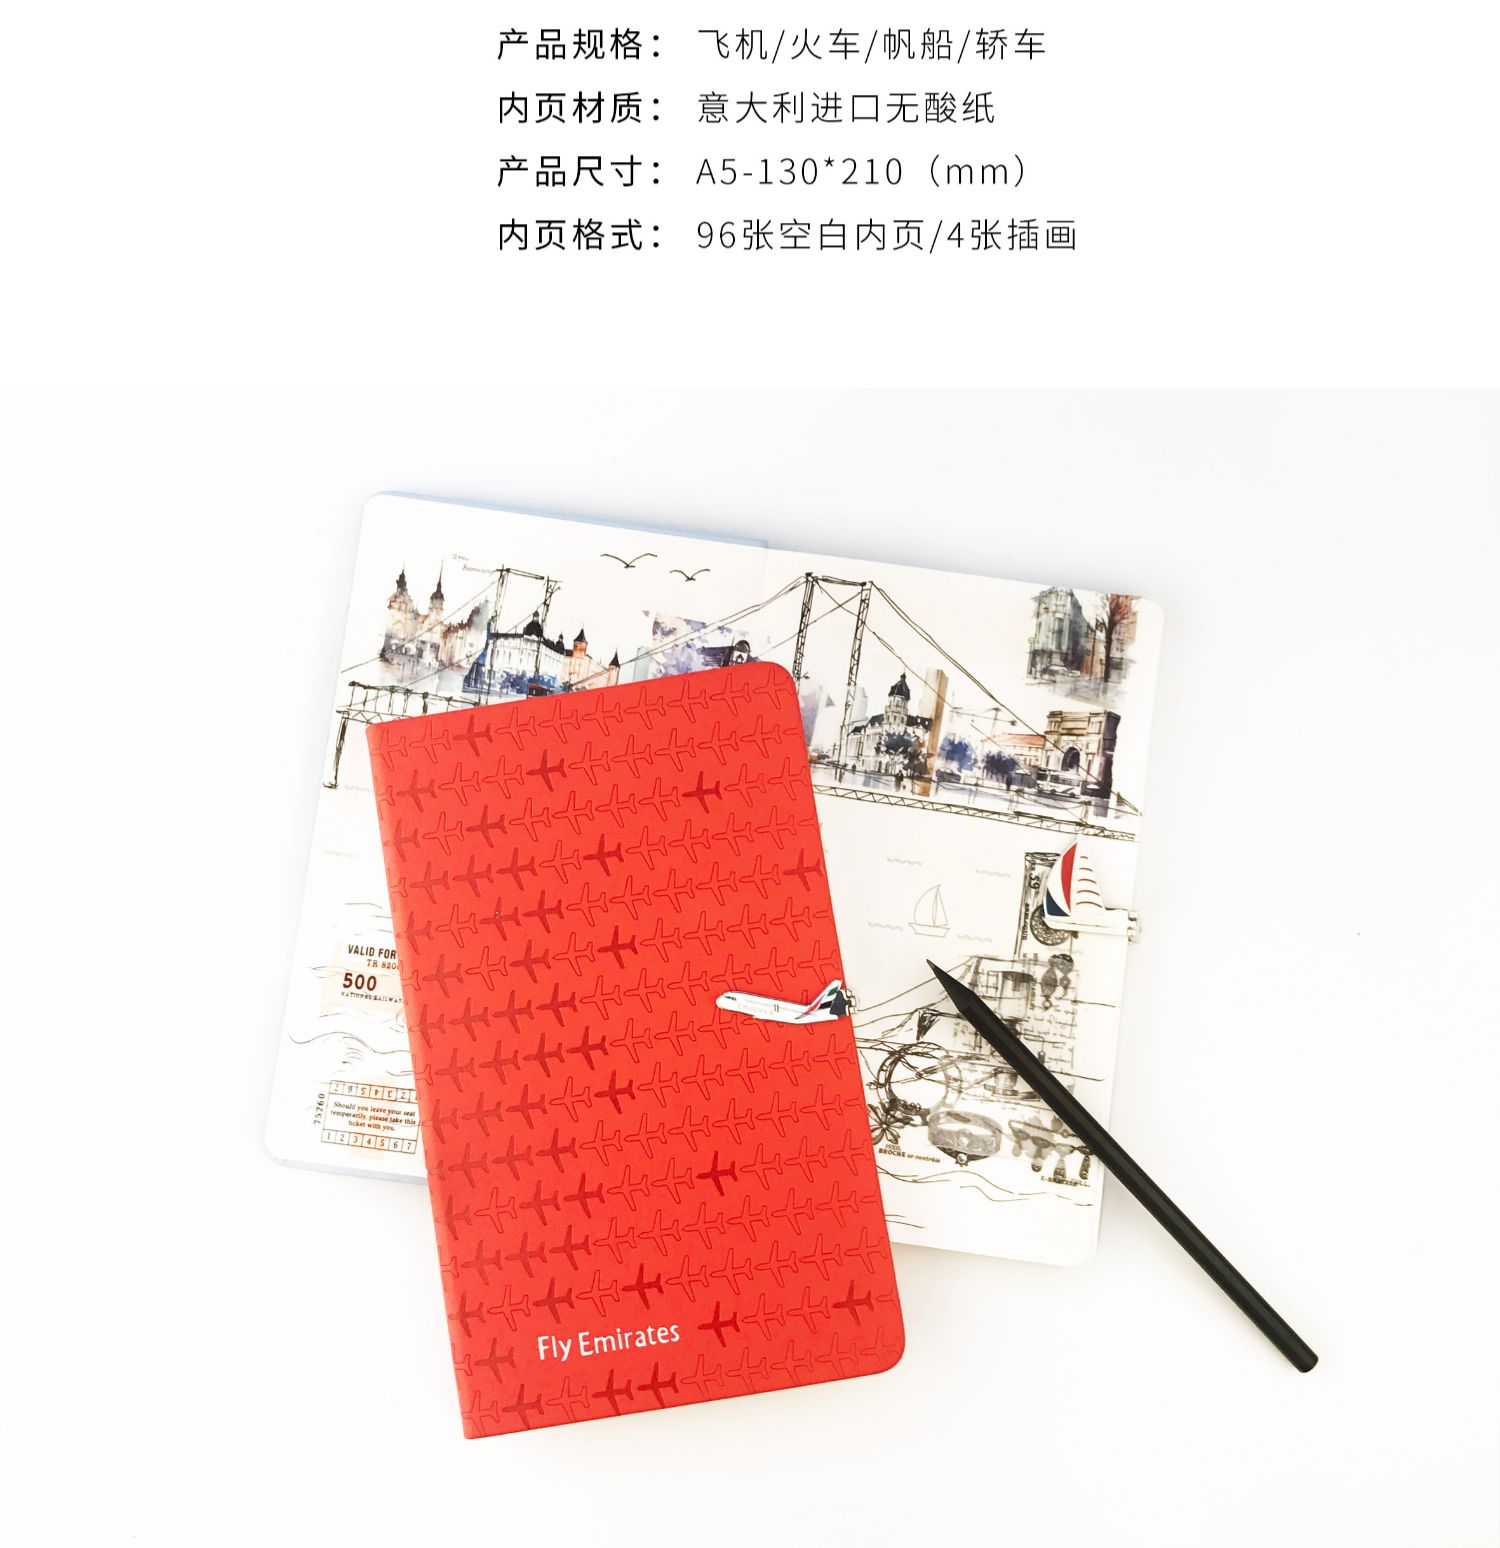 产品规格： 飞机/火车/帆船/轿车
内页材质： 意大利进口无酸纸
产品尺寸： A5-130*210（mm）
内页格式： 96张空白内页/4张插画
VALID FOR
TR 820
500
75260
Should you leave your seat
temporarily, please take this
ticket with you.
1 2 3 4 5 6 7
BROCHE ou contrôlé
Fly Emirates